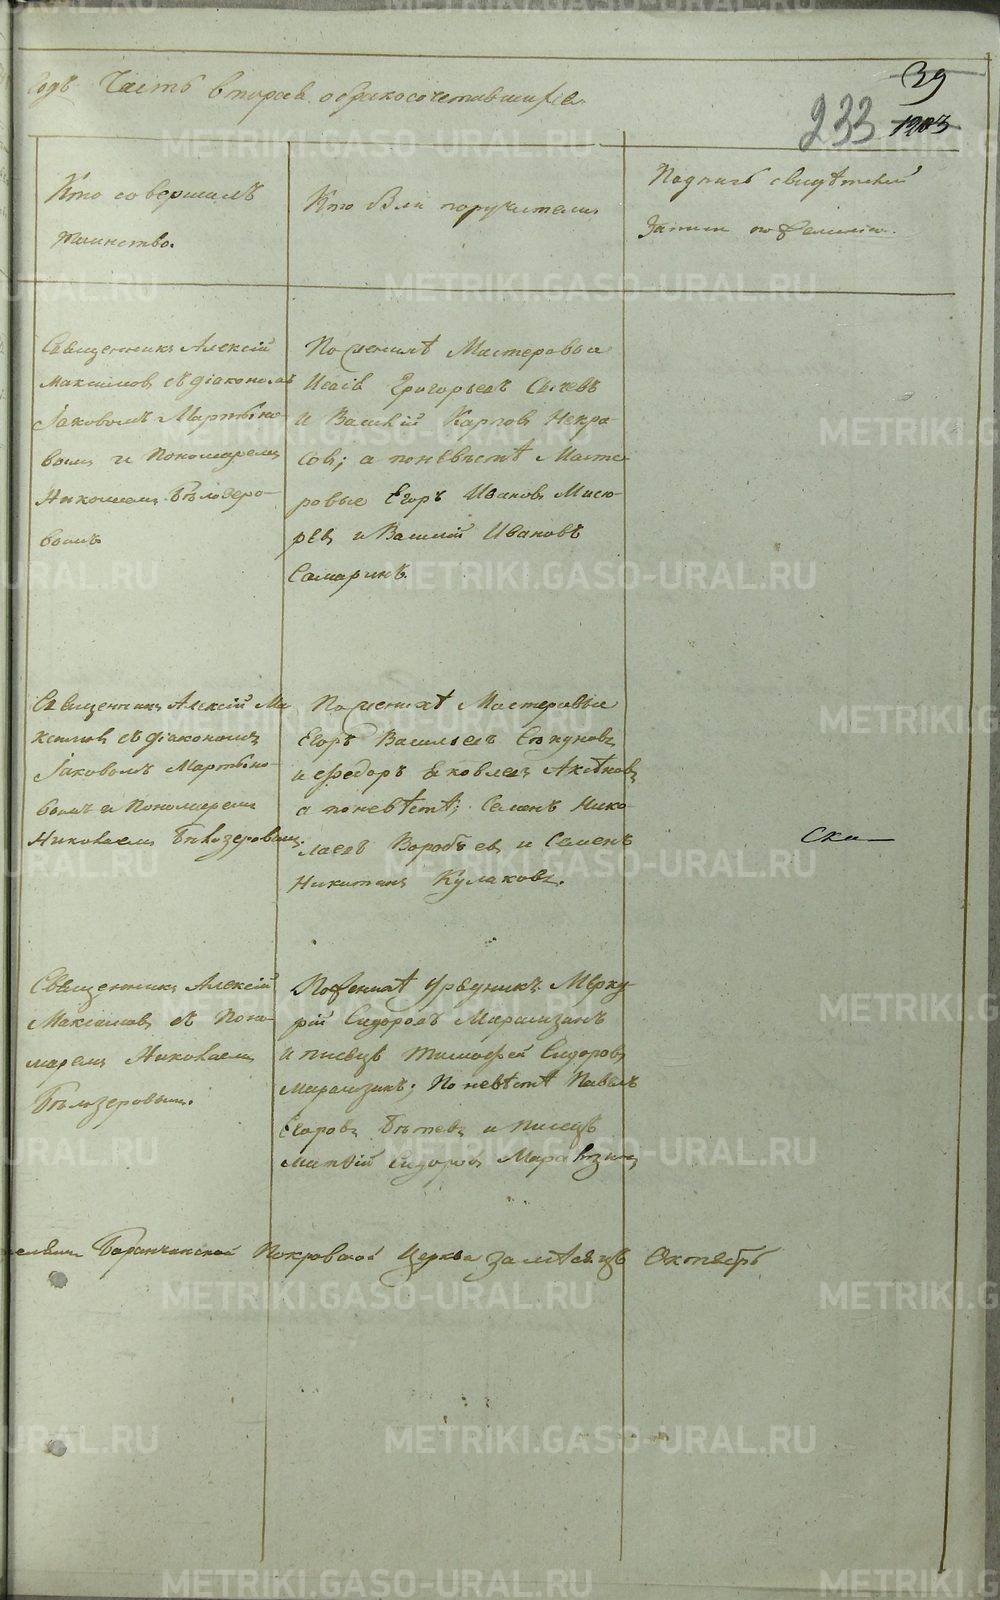 годъ Часть вторая о бракосочетавшихся.
39
233 1203
Кто совершалъ
таинство.
Кто были поручители
Подпись свидѣтелей
записи по желанію.
Священникъ Алексій
Максимов съ діакономъ
Іаковомъ Мартыно-
вымъ и Пономаремъ
Николаемъ Бѣлозеро-
вымъ
По женихѣ Мастеровыя
Исаія Григорьевъ Сычевъ
и Василій Карпов Некра-
сов; а по невѣстѣ Масте-
ровые Егоръ Иванов Мисю-
рев и Василій Ивановъ
Самаринъ.
Священникъ Алексій Ма
ксимов съ діакономъ
Іаковомъ Мартыно-
вымъ и Пономаремъ
Николаемъ Бѣлозеровымъ.
По женихѣ Мастеровыя
Егоръ Васильевъ
и Федоръ Яковлевъ
а по невѣстѣ; Семенъ Нико-
лаевъ Воробьев и Семенъ
Никитинъ Кулаковъ.
Священникъ Алексій
Максимовъ съ Поно-
маремъ Николаемъ
Бѣлозеровымъ.
По женихѣ Урядникъ Мерку-
рій Сидоровъ Марамзинъ
и писецъ Тимофей Сидоровъ
Марамзинъ; По невѣстѣ Павелъ
Егоровъ и писецъ
Матвій Сидоровъ Марамзинъ
Баранчинской Покровской Церкви за мѣсяцъ Октябрь
METRIKI.GASO-URAL.RU